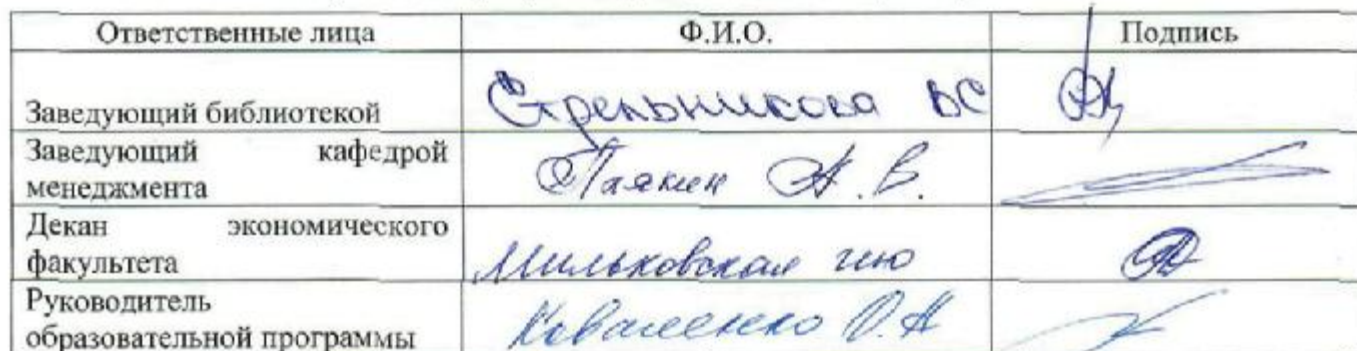 Ответственные лица Ф.И.О. Подпись
Заведующий библиотекой Стрельникова ВС
Заведующий кафедрой
менеджмента А. В.
Декан экономического
факультета Мильковская
Руководитель
образовательной программы Коваленко О.А